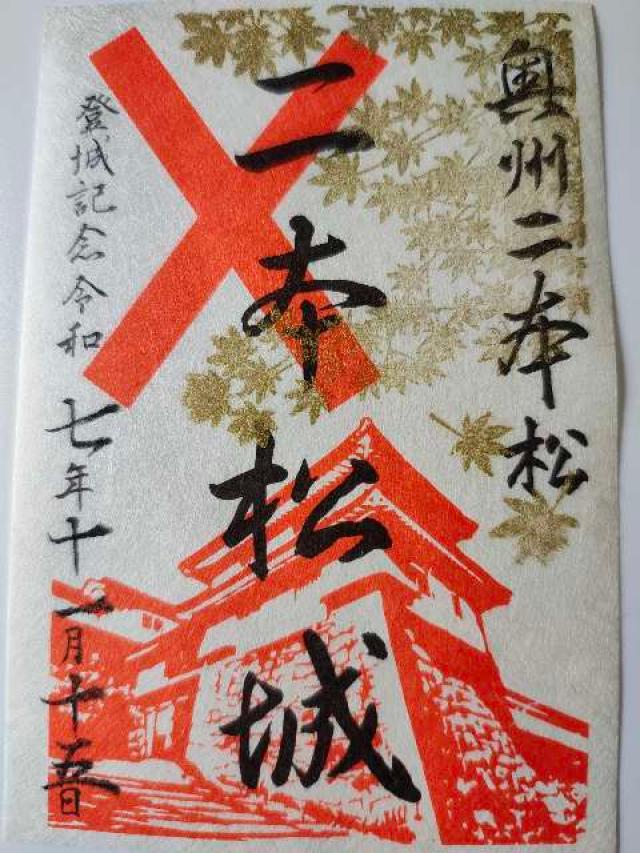 奥州二本松
二本松城
登城記念令和七年十一月十五日